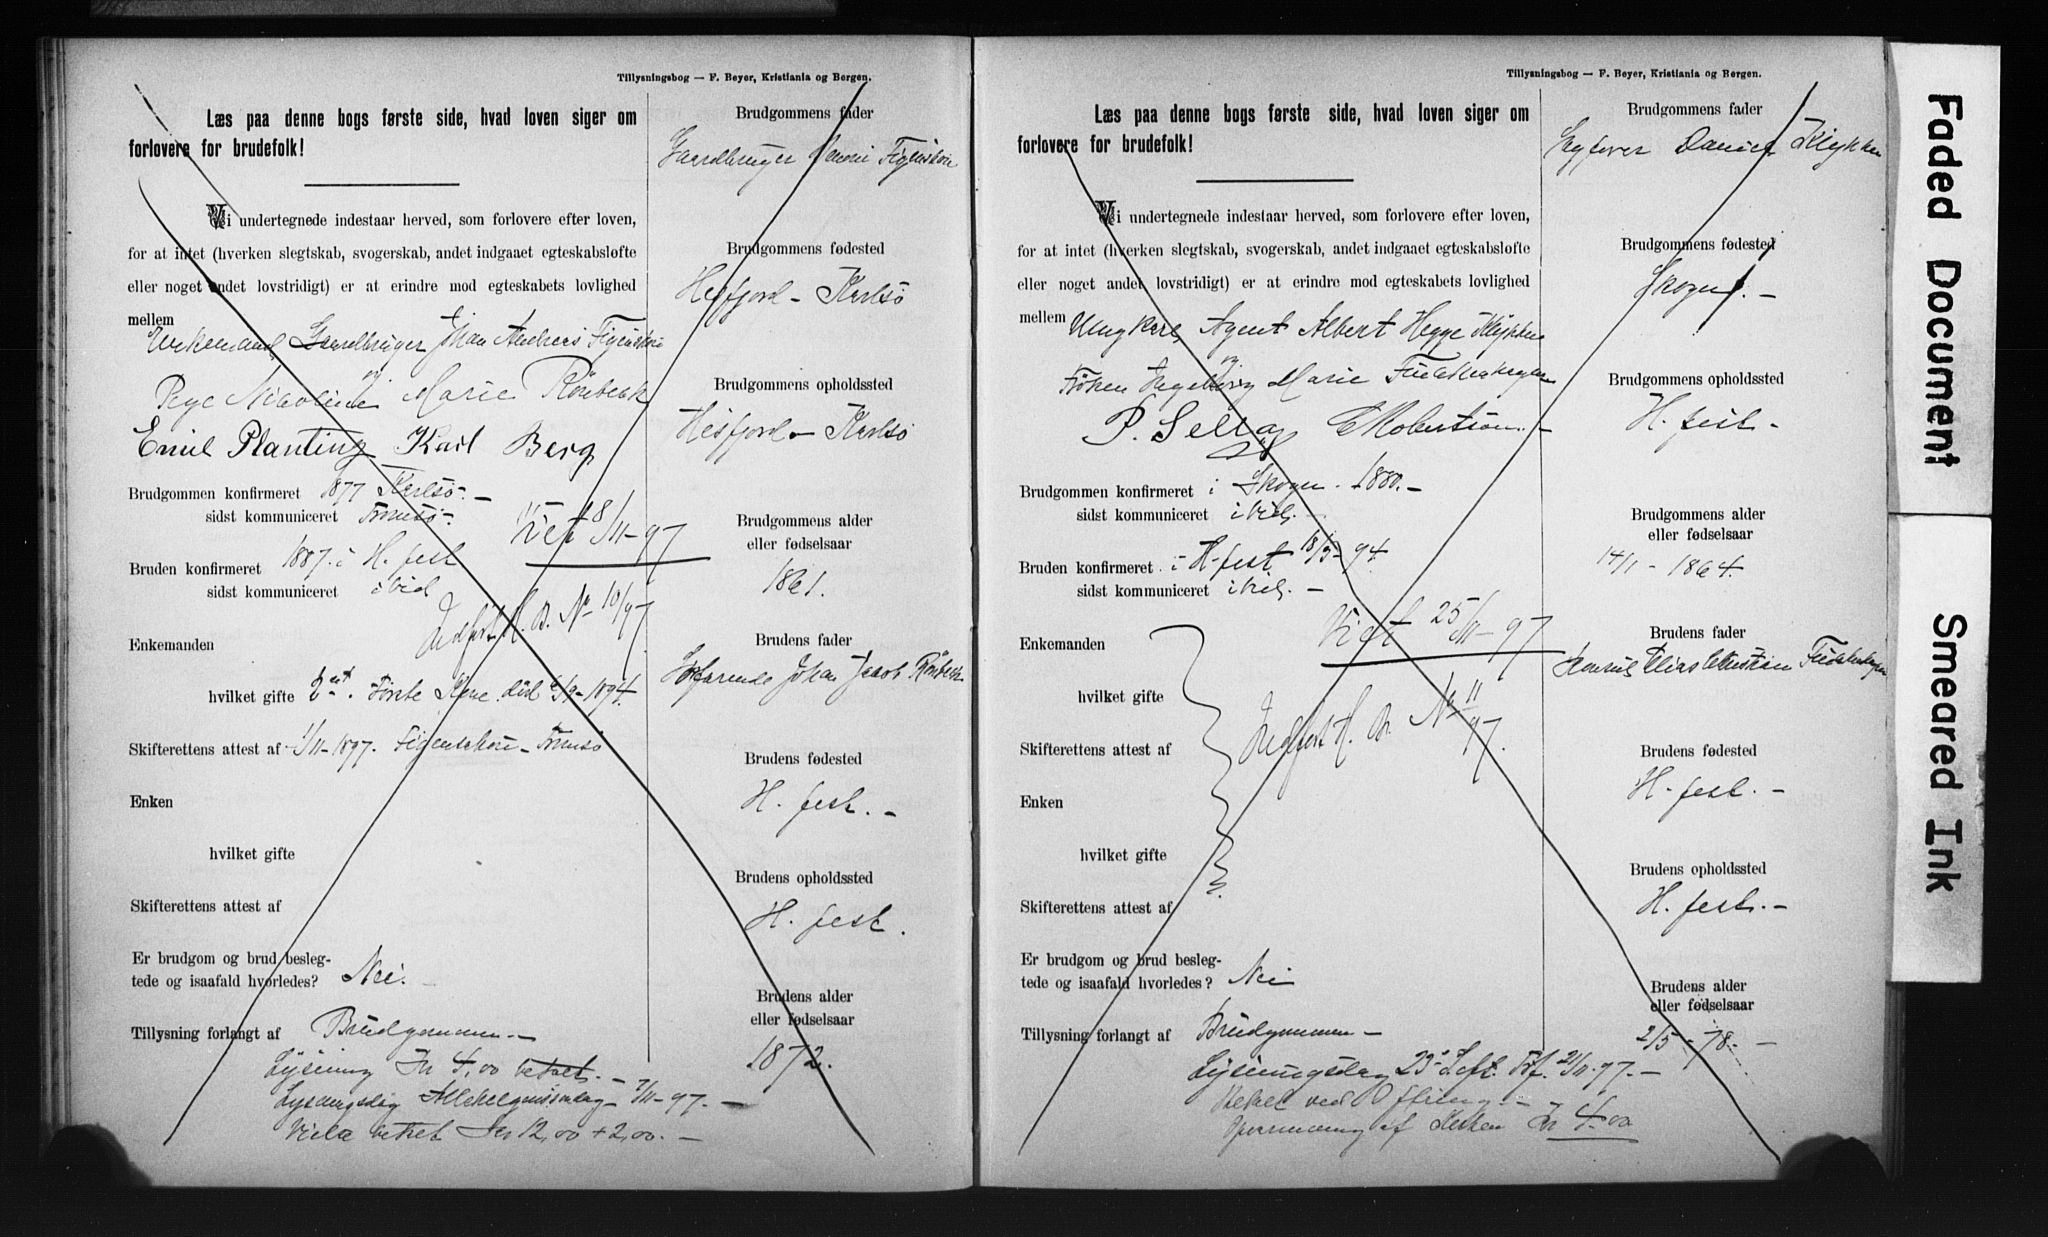 Tillysningsbog — F. Beyer, Kristiania og Bergen.
Læs paa denne bogs første side, hvad loven siger om
forlovere for brudefolk!
Vi undertegnede indestaar herved, som forlovere efter loven,
for at intet (hverken slegtskab, svogerskab, andet indgaaet egteskabsløfte
eller noget andet lovstridigt) er at erindre mod egteskabets lovlighed
mellem
Enkemand Gaardbruger Johan Andreas Figenschou
og
Pige Nicoline Marie Rönbeck
Emil Planting Karl Berg
Brudgommen konfirmeret 1877 Karlsö. —
sidst kommuniceret Tromsö.
Viet 8/11-97
Bruden konfirmeret 1887. i H. fest
sidst kommuniceret i vid
Indført H. B. No 10/97
Enkemanden
hvilket gifte 2det. Første Kone død /9-1894.
Skifterettens attest af 1/11-1897. Figenschou - Tromsö
Enken
hvilket gifte
Skifterettens attest af
Er brudgom og brud besleg-
tede og isaafald hvorledes? Nei. —
Tillysning forlangt af Brudgommen —
Lysning Kr 4,00 betalt. —
Lysningsdag Allehelgensdag 7/11-97. —
Vielse betalt Kr 12,00 + 2,00. —
Brudgommens fader
Gaardbruger Figenschou
Brudgommens fødested
Helfjord - Karlsö
Brudgommens opholdssted
Helfjord - Karlsö
Brudgommens alder
eller fødselsaar
1861.
Brudens fader
Johan Jacob Rönbeck
Brudens fødested
H. fest. —
Brudens opholdssted
H. fest.
Brudens alder
eller fødselsaar
1872.
Tillysningsbog — F. Beyer, Kristiania og Bergen.
Læs paa denne bogs første side, hvad loven siger om
forlovere for brudefolk!
Vi undertegnede indestaar herved, som forlovere efter loven,
for at intet (hverken slegtskab, svogerskab, andet indgaaet egteskabsløfte
eller noget andet lovstridigt) er at erindre mod egteskabets lovlighed
mellem
Ungkarl, Agent Albert Hegge Klykken
og
Frøken Ingeborg Marie Finckenhagen
P. Sellæg CRobertson. —
Brudgommen konfirmeret i Skogn. 1880. —
sidst kommuniceret i vid. —
Bruden konfirmeret i H.fest 18/3-94.
sidst kommuniceret i vid. —
Viet 25/11-97
Enkemanden
hvilket gifte
Indført H. B. No 11/97.
Skifterettens attest af
Enken
hvilket gifte
Skifterettens attest af
Er brudgom og brud besleg-
tede og isaafald hvorledes? Nei
Tillysning forlangt af Brudgommen —
Lysningsdag 23de S. eft. Trf. 21/11.97. —
Vielse ved Offring —
Opvarmning af Kirken Kr 4,00
Brudgommens fader
Daniel Klykken
Brudgommens fødested
Skogn. —
Brudgommens opholdssted
H. fest. —
Brudgommens alder
eller fødselsaar
14/1 - 1864.
Brudens fader
Konsul Elias Christian Finckenhagen
Brudens fødested
H. fest. —
Brudens opholdssted
H. fest. —
Brudens alder
eller fødselsaar
2/5 - 78. —
Faded Document
Smeared Ink